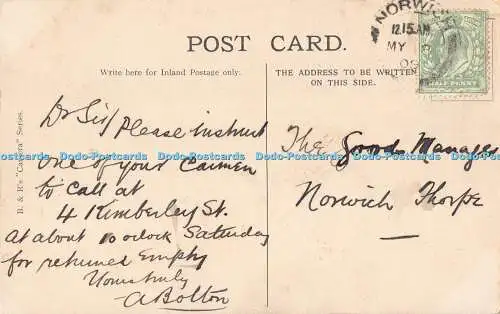 NORWICH
12.15 AM
MY
HALF PENNY
POST CARD.
Write here for Inland Postage only.
THE ADDRESS TO BE WRITTEN
ON THIS SIDE.
B. & R's "Camera" Series.
Dr Sir/ Please instruct
one of your Carmen
to call at
4 Kimberley St.
at about 10 oclock Saturday
for returned Empty
Yours truly
A Bolton
The Goods Manager
Norwich Thorpe
Dodo-Postcards Dodo-Postcards Dodo-Postcards Dodo-Postcards Dodo-Postcards Dodo-Postcards